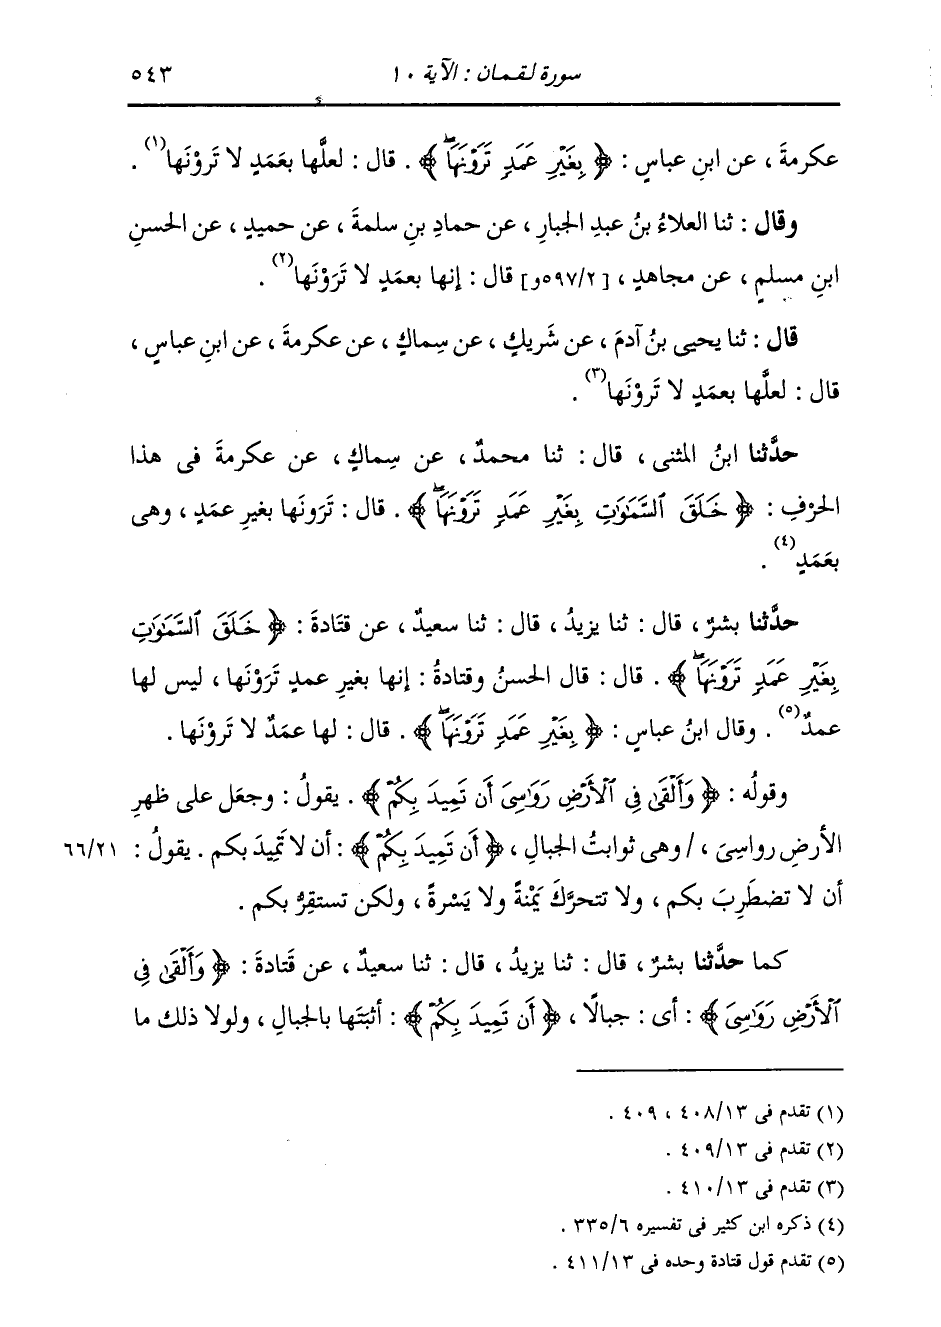 سورة لقمان : الآية ١٠
٥٤٣
عكرمةَ ، عن ابنِ عباسٍ : ﴿ بِغَيْرِ عَمَدٍ تَرَوْنَهَا ﴾ . قال : لعلَّها بعَمَدٍ لا تَرَوْنَها(١) .
وقال : ثنا العلاءُ بنُ عبدِ الجبارِ ، عن حمادِ بنِ سلمةَ ، عن حميدٍ ، عن الحسنِ
ابنِ مسلمٍ ، عن مجاهدٍ ، [٥٩٧/٢و] قال : إنها بعمَدٍ لا تَرَوْنَها(٢) .
قال : ثنا يحيى بنُ آدمَ ، عن شَريكٍ ، عن سِماكٍ ، عن عكرمةَ ، عن ابنِ عباسٍ ،
قال : لعلَّها بعمَدٍ لا تَروْنَها(٣) .
حدَّثنا ابنُ المثنى ، قال : ثنا محمدٌ ، عن سِماكٍ ، عن عكرمةَ فى هذا
الحَرْفِ : ﴿ خَلَقَ ٱلسَّمَٰوَٰتِ بِغَيْرِ عَمَدٍ تَرَوْنَهَا ﴾ . قال : تَرَونَها بغيرِ عمَدٍ ، وهى
بعَمَدٍ(٤) .
حدَّثنا بشرٌ ، قال : ثنا يزيدُ ، قال : ثنا سعيدٌ ، عن قتَادةَ : ﴿ خَلَقَ ٱلسَّمَٰوَٰتِ
بِغَيْرِ عَمَدٍ تَرَوْنَهَا ﴾ . قال : قال الحسنُ وقتادةُ : إنها بغيرِ عمدٍ تَرَوْنَها ، ليس لها
عمدٌ(٥) . وقال ابنُ عباسٍ : ﴿ بِغَيْرِ عَمَدٍ تَرَوْنَهَا ﴾ . قال : لها عمَدٌ لا تَرَوْنَها .
وقولُه : ﴿ وَأَلْقَىٰ فِى ٱلْأَرْضِ رَوَٰسِىَ أَن تَمِيدَ بِكُمْ ﴾ . يقولُ : وجعَل على ظهرِ
الأرضِ رواسِىَ ، / وهى ثوابتُ الجبالِ ، ﴿ أَن تَمِيدَ بِكُمْ ﴾ : أن لا تَمِيدَ بكم . يقولُ : ٦٦/٢١
أن لا تضطَرِبَ بكم ، ولا تتحرَّكَ يَمْنةً ولا يَسْرةً ، ولكن تستقِرُّ بكم .
كما حدَّثنا بشرٌ ، قال : ثنا يزيدُ ، قال : ثنا سعيدٌ ، عن قَتادةَ : ﴿ وَأَلْقَىٰ فِى
ٱلْأَرْضِ رَوَٰسِىَ ﴾ : أى : جبالًا ، ﴿ أَن تَمِيدَ بِكُمْ ﴾ : أثبَتَها بالجبالِ ، ولولا ذلك ما
(١) تقدم فى ٤٠٨/١٣ ، ٤٠٩ .
(٢) تقدم فى ٤٠٩/١٣ .
(٣) تقدم فى ٤١٠/١٣ .
(٤) ذكره ابن كثير فى تفسيره ٣٣٥/٦ .
(٥) تقدم قول قتادة وحده فى ٤١١/١٣ .